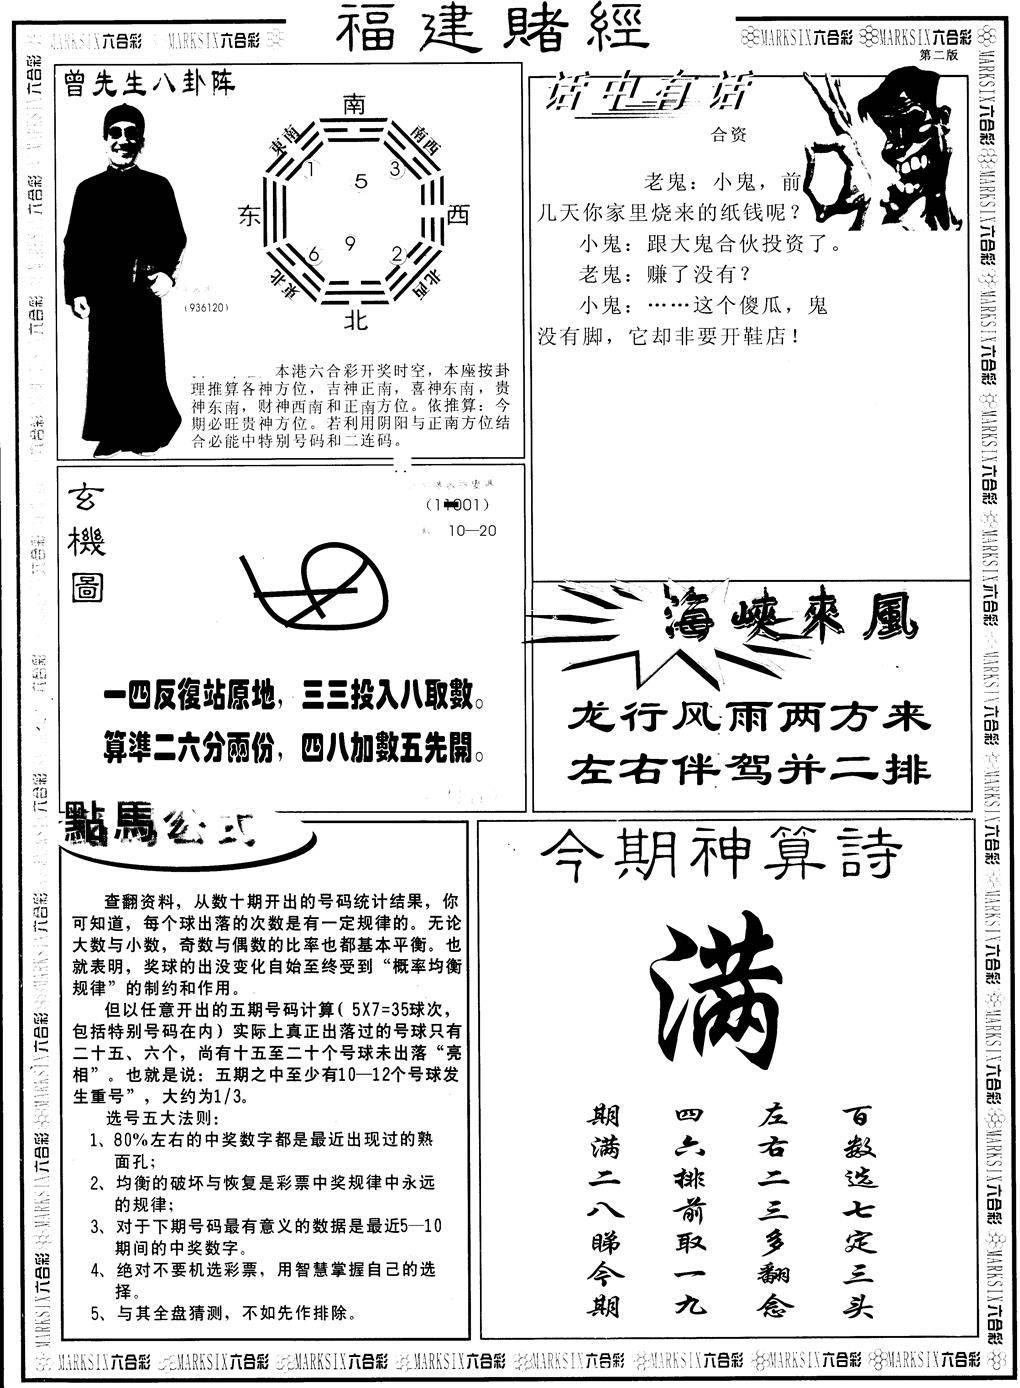 福建賭經
MARKSIX六合彩 MARKSIX六合彩
MARKSIX六合彩 MARKSIX六合彩
第二版
曾先生八卦阵
南
東南
南西
1
5
3
东
西
6
9
2
東北
北西
北
(936120)
本港六合彩开奖时空，本座按卦
理推算各神方位，吉神正南，喜神东南，贵
神东南，财神西南和正南方位。依推算：今
期必旺贵神方位。若利用阴阳与正南方位结
合必能中特别号码和二连码。
话中有话
合资
老鬼：小鬼，前
几天你家里烧来的纸钱呢？
小鬼：跟大鬼合伙投资了。
老鬼：赚了没有？
小鬼：……这个傻瓜，鬼
没有脚，它却非要开鞋店！
玄機圖
10—20
一四反復站原地，三三投入八取數。
算準二六分兩份，四八加數五先開。
海峽來風
龙行风雨两方来
左右伴驾并二排
點馬公式
查翻资料，从数十期开出的号码统计结果，你
可知道，每个球出落的次数是有一定规律的。无论
大数与小数，奇数与偶数的比率也都基本平衡。也
就表明，奖球的出没变化自始至终受到“概率均衡
规律”的制约和作用。
但以任意开出的五期号码计算( 5X7=35球次，
包括特别号码在内）实际上真正出落过的号球只有
二十五、六个，尚有十五至二十个号球未出落“亮
相”。也就是说：五期之中至少有10—12个号球发
生重号”，大约为1/3。
选号五大法则：
1、80%左右的中奖数字都是最近出现过的熟
面孔；
2、均衡的破坏与恢复是彩票中奖规律中永远
的规律；
3、对于下期号码最有意义的数据是最近5—10
期间的中奖数字。
4、绝对不要机选彩票，用智慧掌握自己的选
择。
5、与其全盘猜测，不如先作排除。
今期神算詩
满
百数选七定三头
左右二三多翻念
四六排前取一九
期满二八睇今期
MARKSIX六合彩 MARKSIX六合彩 MARKSIX六合彩 MARKSIX六合彩 MARKSIX六合彩 MARKSIX六合彩 MARKSIX六合彩 MARKSIX六合彩